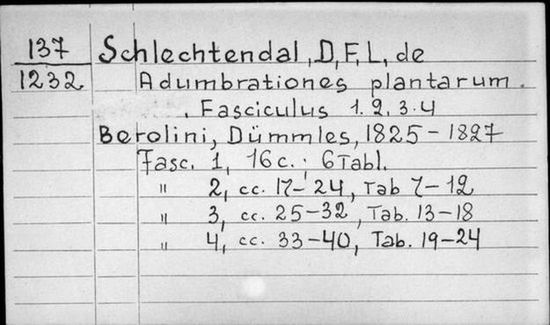 137 Schlechtendal, D, F, L, de
1232 Adumbrationes plantarum.
. Fasciculus 1. 2, 3. 4
Berolini, Dümmles, 1825 - 1827
Fasc. 1, 16 c. ; 6 Tabl.
" 2, cc. 17-24, Tab 7-12
" 3, cc. 25-32, Tab. 13-18
" 4, cc. 33-40, Tab. 19-24